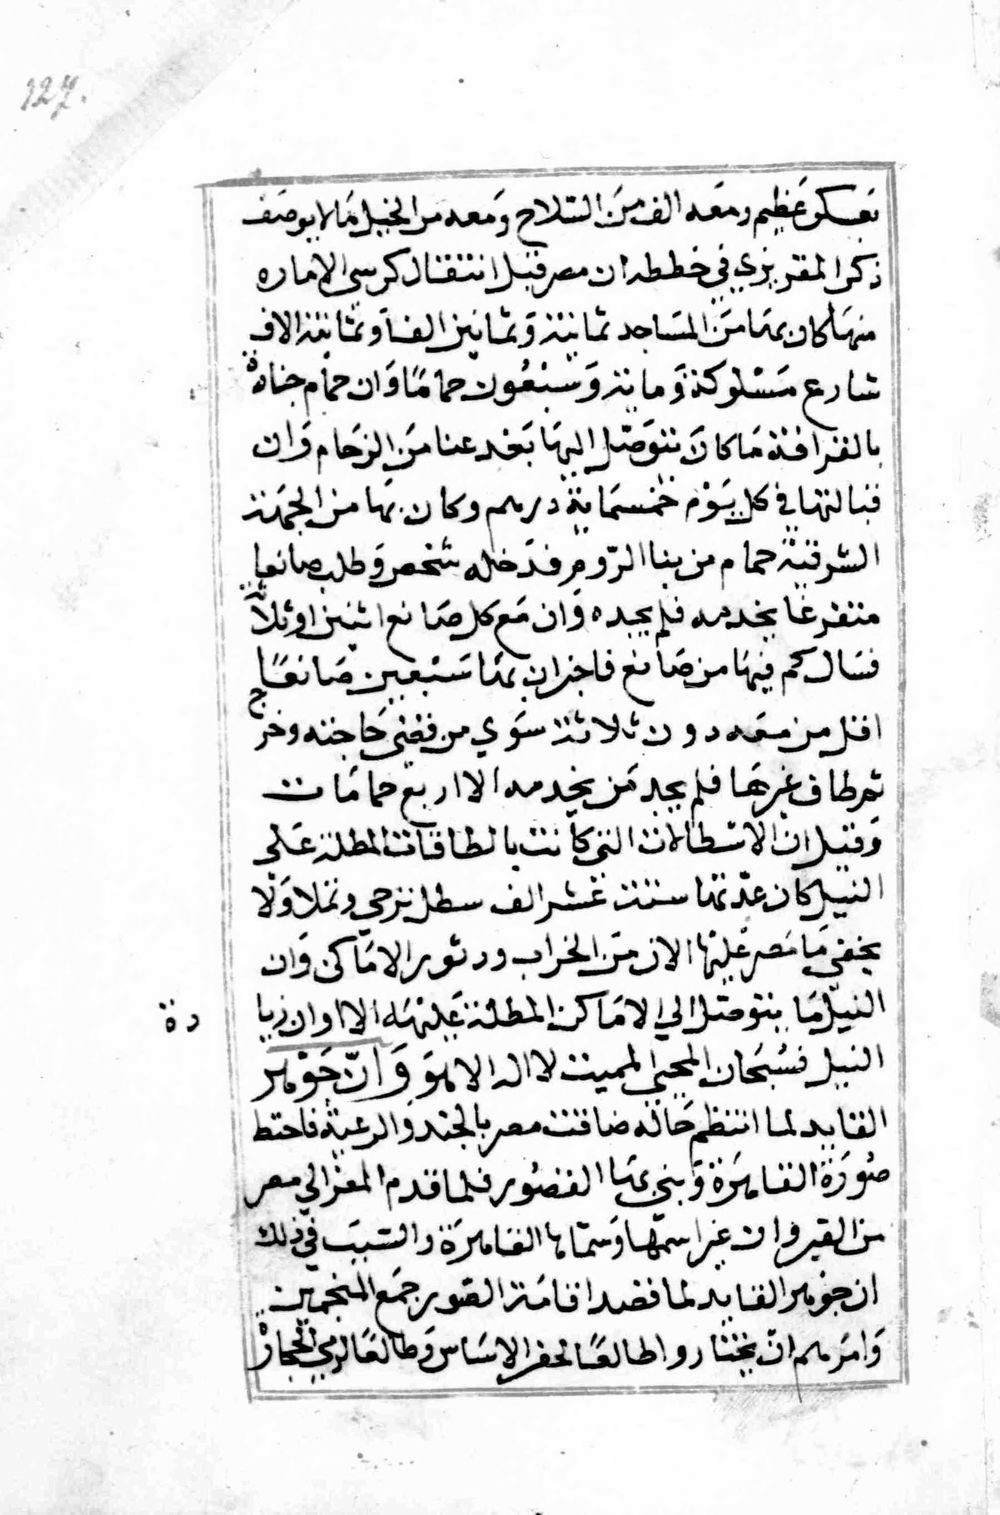 127.
بعسكر عظيم ومعه الف من السلاح ومعه من الخيل مالا يوصف
ذكر المقريزي في خططه ان مصر قبل انتقال كرسي الاماره
منها كان بها من المساجد ثمانية وثمانين الفا وثمانية الاف
شارع مسلوكة وماية وسبعون حماما وان حمام جنادة
بالقرافة ما كان يتوصل اليها بعد عنا من الزحام وان
قبالتها في كل يوم خمسماية درهم وكان بها من الجهة
الشرقية حمام من بنا الروم فدخله شخص وطلب صانعا
متفرغا يخدمه فلم يجده وان مع كل صانع اثنين او ثلاث
فسال كم فيها من صانع فاخبر ان بها سبعين صانعا
اقل من معه دون ثلاثة سوي من قضي حاجته وخرج
ثم طاف غيرها فلم يجد من يخدمه الا اربع حمامات
وقيل ان الاسطالات التي كانت بالطاقات المطلة علي
النيل كان عدتها ستة عشر الف سطل ترخي وتملا ولا
يخفي ما مصر عليها الان من الخراب ودثور الاماكن وان
النيل ما يتوصل الي الاماكن المطلة عليه الا اوان زيا
دة
النيل فسبحان المحيي المميت لا اله الا هو وان جوهر
القايد لما انتظم حاله ضاقت مصر بالجند والرعية فاختط
صورة القاهرة وبني بها القصور فلما قدم المعز الي مصر
من القيروان غير اسمها وسماها القاهرة والسبب في ذلك
ان جوهر القايد لما قصد اقامة الصور جمع المنجمين
وامرهم ان يختاروا طالعا لحفر الاساس وطالعا لرمي الحجارة